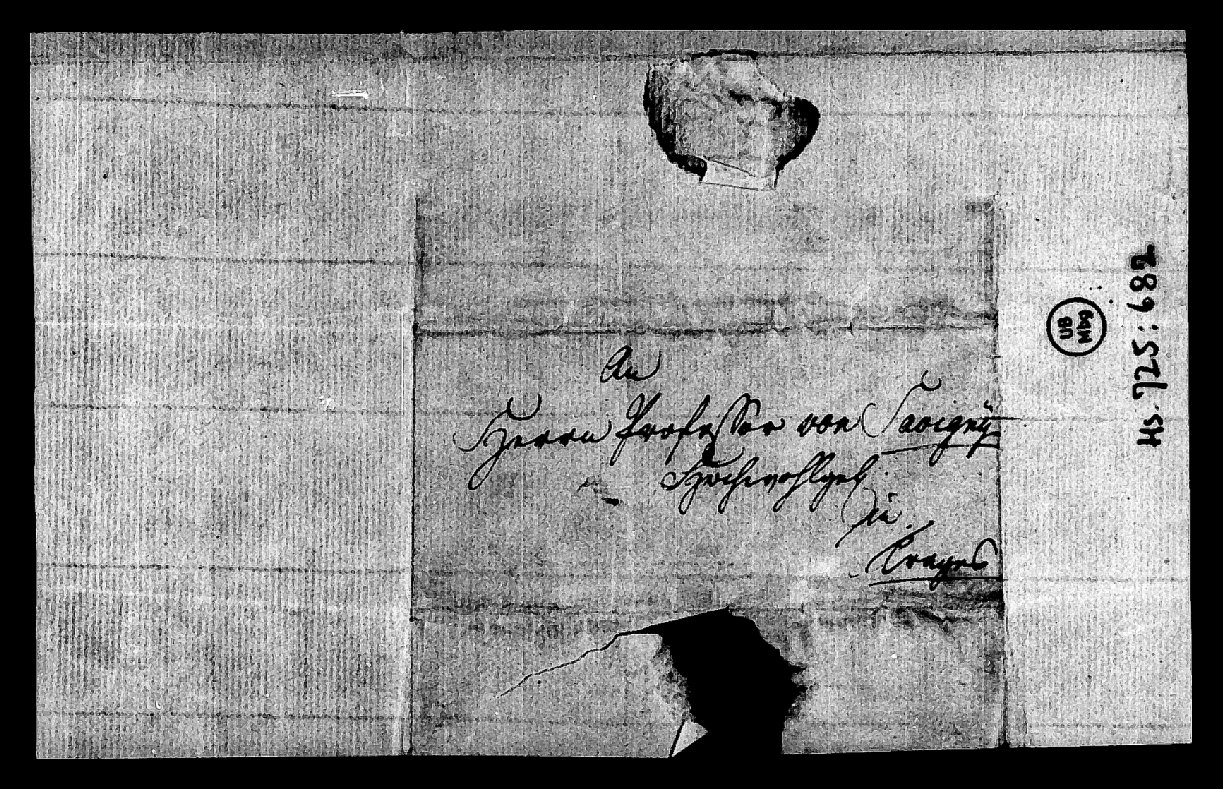 An
Herrn Professor von Savigny
Hochwohlgeb.
in
Trages
UB
Mbg
Hs. 725:682